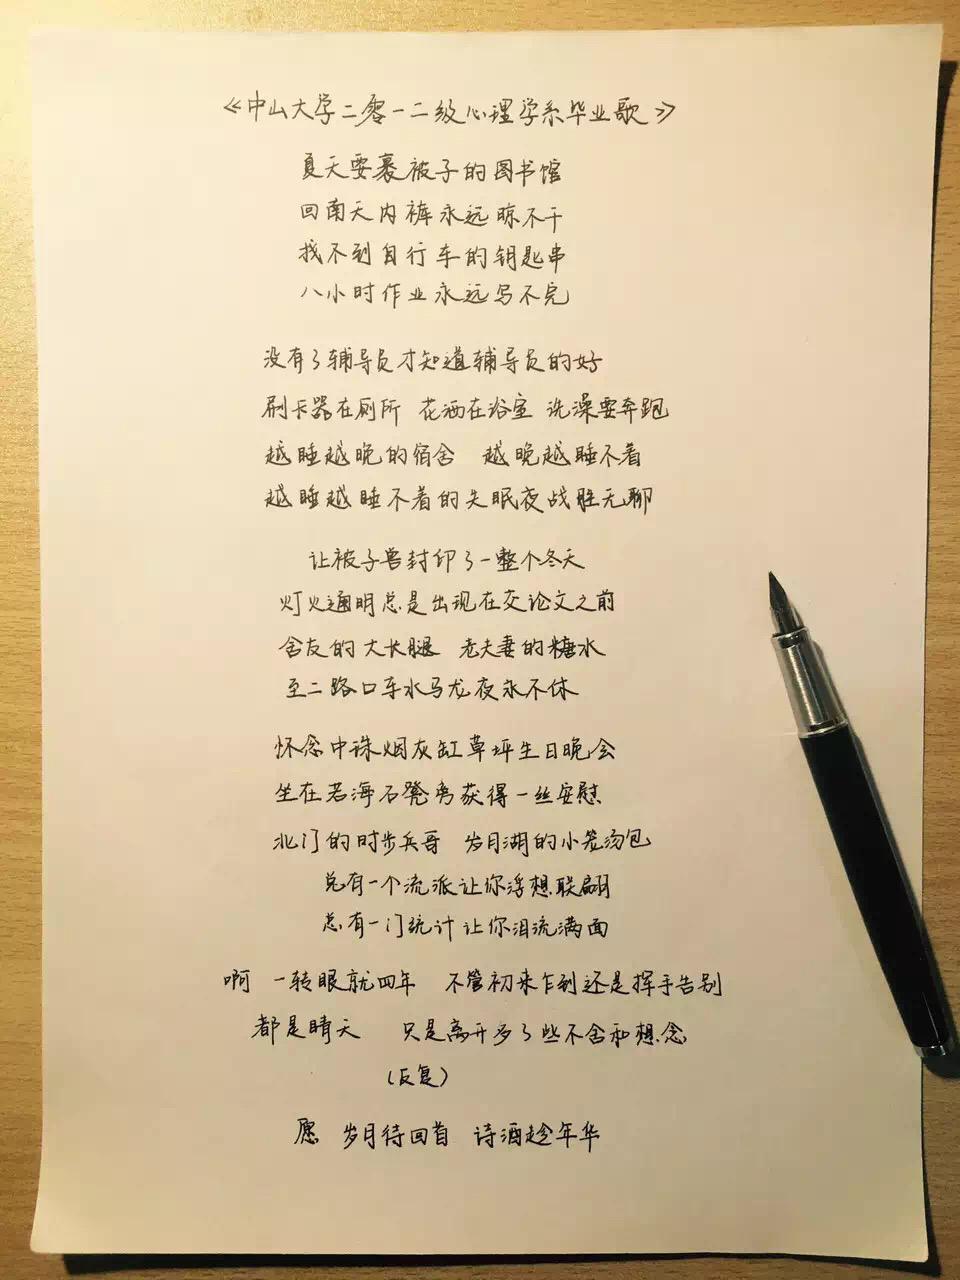 《中山大学二零一二级心理学系毕业歌》
夏天要裹被子的图书馆
回南天内裤永远晾不干
找不到自行车的钥匙串
八小时作业永远写不完
没有了辅导员才知道辅导员的好
刷卡器在厕所 花洒在浴室 洗澡要奔跑
越睡越晚的宿舍 越晚越睡不着
越睡越睡不着的失眠夜战胜无聊
让被子兽封印了一整个冬天
灯火通明总是出现在交论文之前
舍友的大长腿 老夫妻的糖水
至二路口车水马龙夜永不休
怀念中珠烟灰缸草坪生日晚会
坐在若海石凳旁获得一丝安慰
北门的时步兵哥 岁月湖的小笼汤包
总有一个流派让你浮想联翩
总有一门统计让你泪流满面
啊 一转眼就四年 不管初来乍到还是挥手告别
都是晴天 只是离开多了些不舍和想念
(反复)
愿 岁月待回首 诗酒趁年华